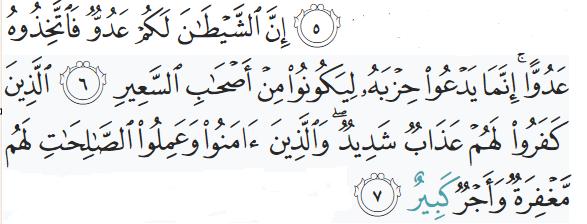 ٥ إِنَّ ٱلشَّيْطَٰنَ لَكُمْ عَدُوٌّ فَٱتَّخِذُوهُ
عَدُوًّا ۚ إِنَّمَا يَدْعُوا۟ حِزْبَهُۥ لِيَكُونُوا۟ مِنْ أَصْحَٰبِ ٱلسَّعِيرِ ٦ ٱلَّذِينَ
كَفَرُوا۟ لَهُمْ عَذَابٌ شَدِيدٌ ۖ وَٱلَّذِينَ ءَامَنُوا۟ وَعَمِلُوا۟ ٱلصَّٰلِحَٰتِ لَهُم
مَّغْفِرَةٌ وَأَجْرٌ كَبِيرٌ ٧